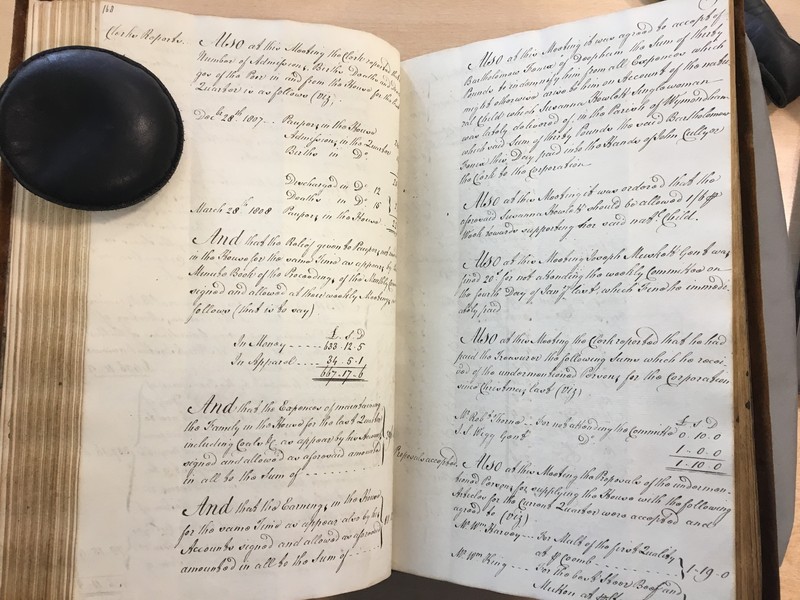 168
Clerks Reports.
Also at this Meeting the Clerk reported that the
Number of Admissions, Births Deaths and
ges of the Poor in and from the House for the
Quarter is as follows (Viz.
Decr. 28th. 1807... Paupers in the House
Admissions in the Quarter
Births in Do.
Discharged in Do. 12
Deaths in Do. 16
March 28th. 1808 Paupers in the House
And that the Relief given to Paupers not
in the House for the same Time as appears by the
Minute Book of the Proceedings of the Weekly
signed and allowed at their weekly Meetings
follows (that is to say)
£. S. D
In Money 633. 12. 5
In Apparel 34. 5. 1
667. 17. 6
And that the Expences of maintaining
the Family in the House for the last Quarter
including Coals &c. as appear by his Accounts
signed and allowed as aforesaid amounted
in all to the Sum of
And that the Earnings in the House
for the same Time as appear also by his
Accounts signed and allowed as aforesaid
amounted in all to the Sum of
Also at this Meeting it was agreed to accept of
Bartholomew House of Deopham the Sum of thirty
Pounds to indemnify him from all Expences which
might otherwise arise to him on Account of the natu-
ral Child which Susanna Howlett Singlewoman
was lately delivered of in the Parish of Wymondham
which said Sum of thirty Pounds the said Bartholomew
House this Day paid into the Hands of John Cullyer
the Clerk to the Corporation
Also at this Meeting it was ordered that the
aforesaid Susanna Howlett should be allowed 1s/6d ℔
Week towards supporting her said natl. Child.
Also at this Meeting Joseph Muskett Gent was
fined 20s. for not attending the weekly Committee on
the fourth Day of Jany. last, which Fine he immedi-
ately paid
Also at this Meeting the Clerk reported that he had
paid the Treasurer the following Sums which he recei-
ved of the undermentioned Persons for the Corporation
since Christmas last (Viz)
£ S D
Mr. Robt. Thorne.. For not attending the Committee 0. 10. 0
J. S. Wigg Gent Do. 1. 0. 0
1. 10. 0
Proposals accepted.
Also at this Meeting the Proposals of the undermen-
tioned Persons for supplying the House with the following
Articles for the Current Quarter were accepted and
agreed to (Viz)
Mr. Wm. Harvey... For Malt of the first Quality
at ℔ Coomb 1-19-0
Mr. Wm. King... For the best Steer Beef and
Mutton at